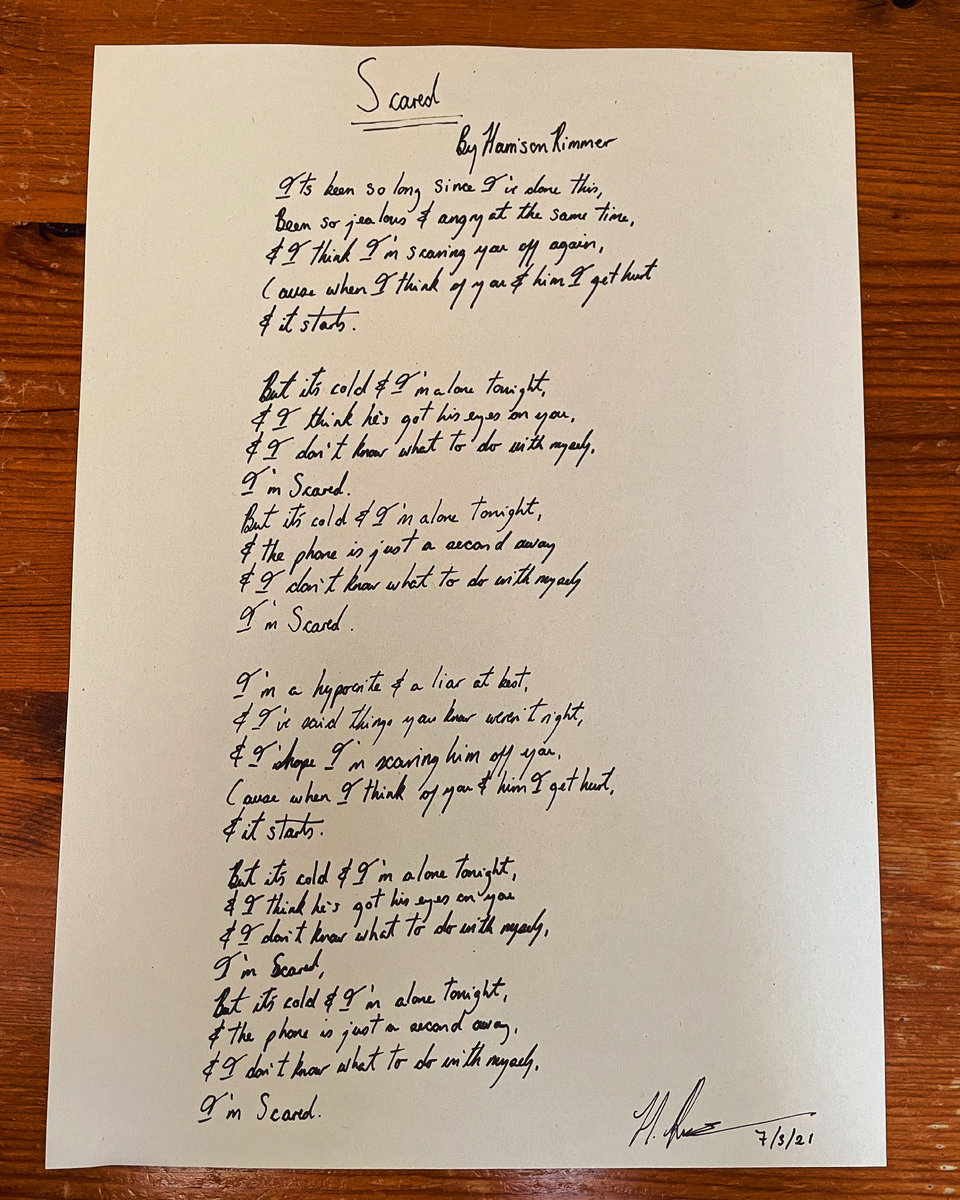 Scared
By Harrison Rimmer
Its been so long since I've done this,
Been so jealous & angry at the same time,
& I think I'm scaring you off again,
Cause when I think of you & him I get hurt
& it starts.
But it's cold & I'm alone tonight,
& I think he's got his eyes on you,
& I don't know what to do with myself.
I'm Scared.
But it's cold & I'm alone tonight,
& the phone is just a second away
& I don't know what to do with myself
I'm Scared.
I'm a hypocrite & a liar at best,
& I've said things you know weren't right,
& I hope I'm scaring him off you,
Cause when I think of you & him I get hurt,
& it starts.
But it's cold & I'm alone tonight,
& I think he's got his eyes on you
& I don't know what to do with myself,
I'm Scared,
But it's cold & I'm alone tonight,
& the phone is just a second away,
& I don't know what to do with myself.
I'm Scared.
H.
7/3/21